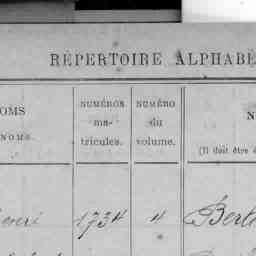 RÉPERTOIRE ALPHABÉ
OMS
NOMS.
NUMÉROS
ma-
tricules.
NUMÉRO
du
volume.
N
(Il doit être é
1734
4
Bert